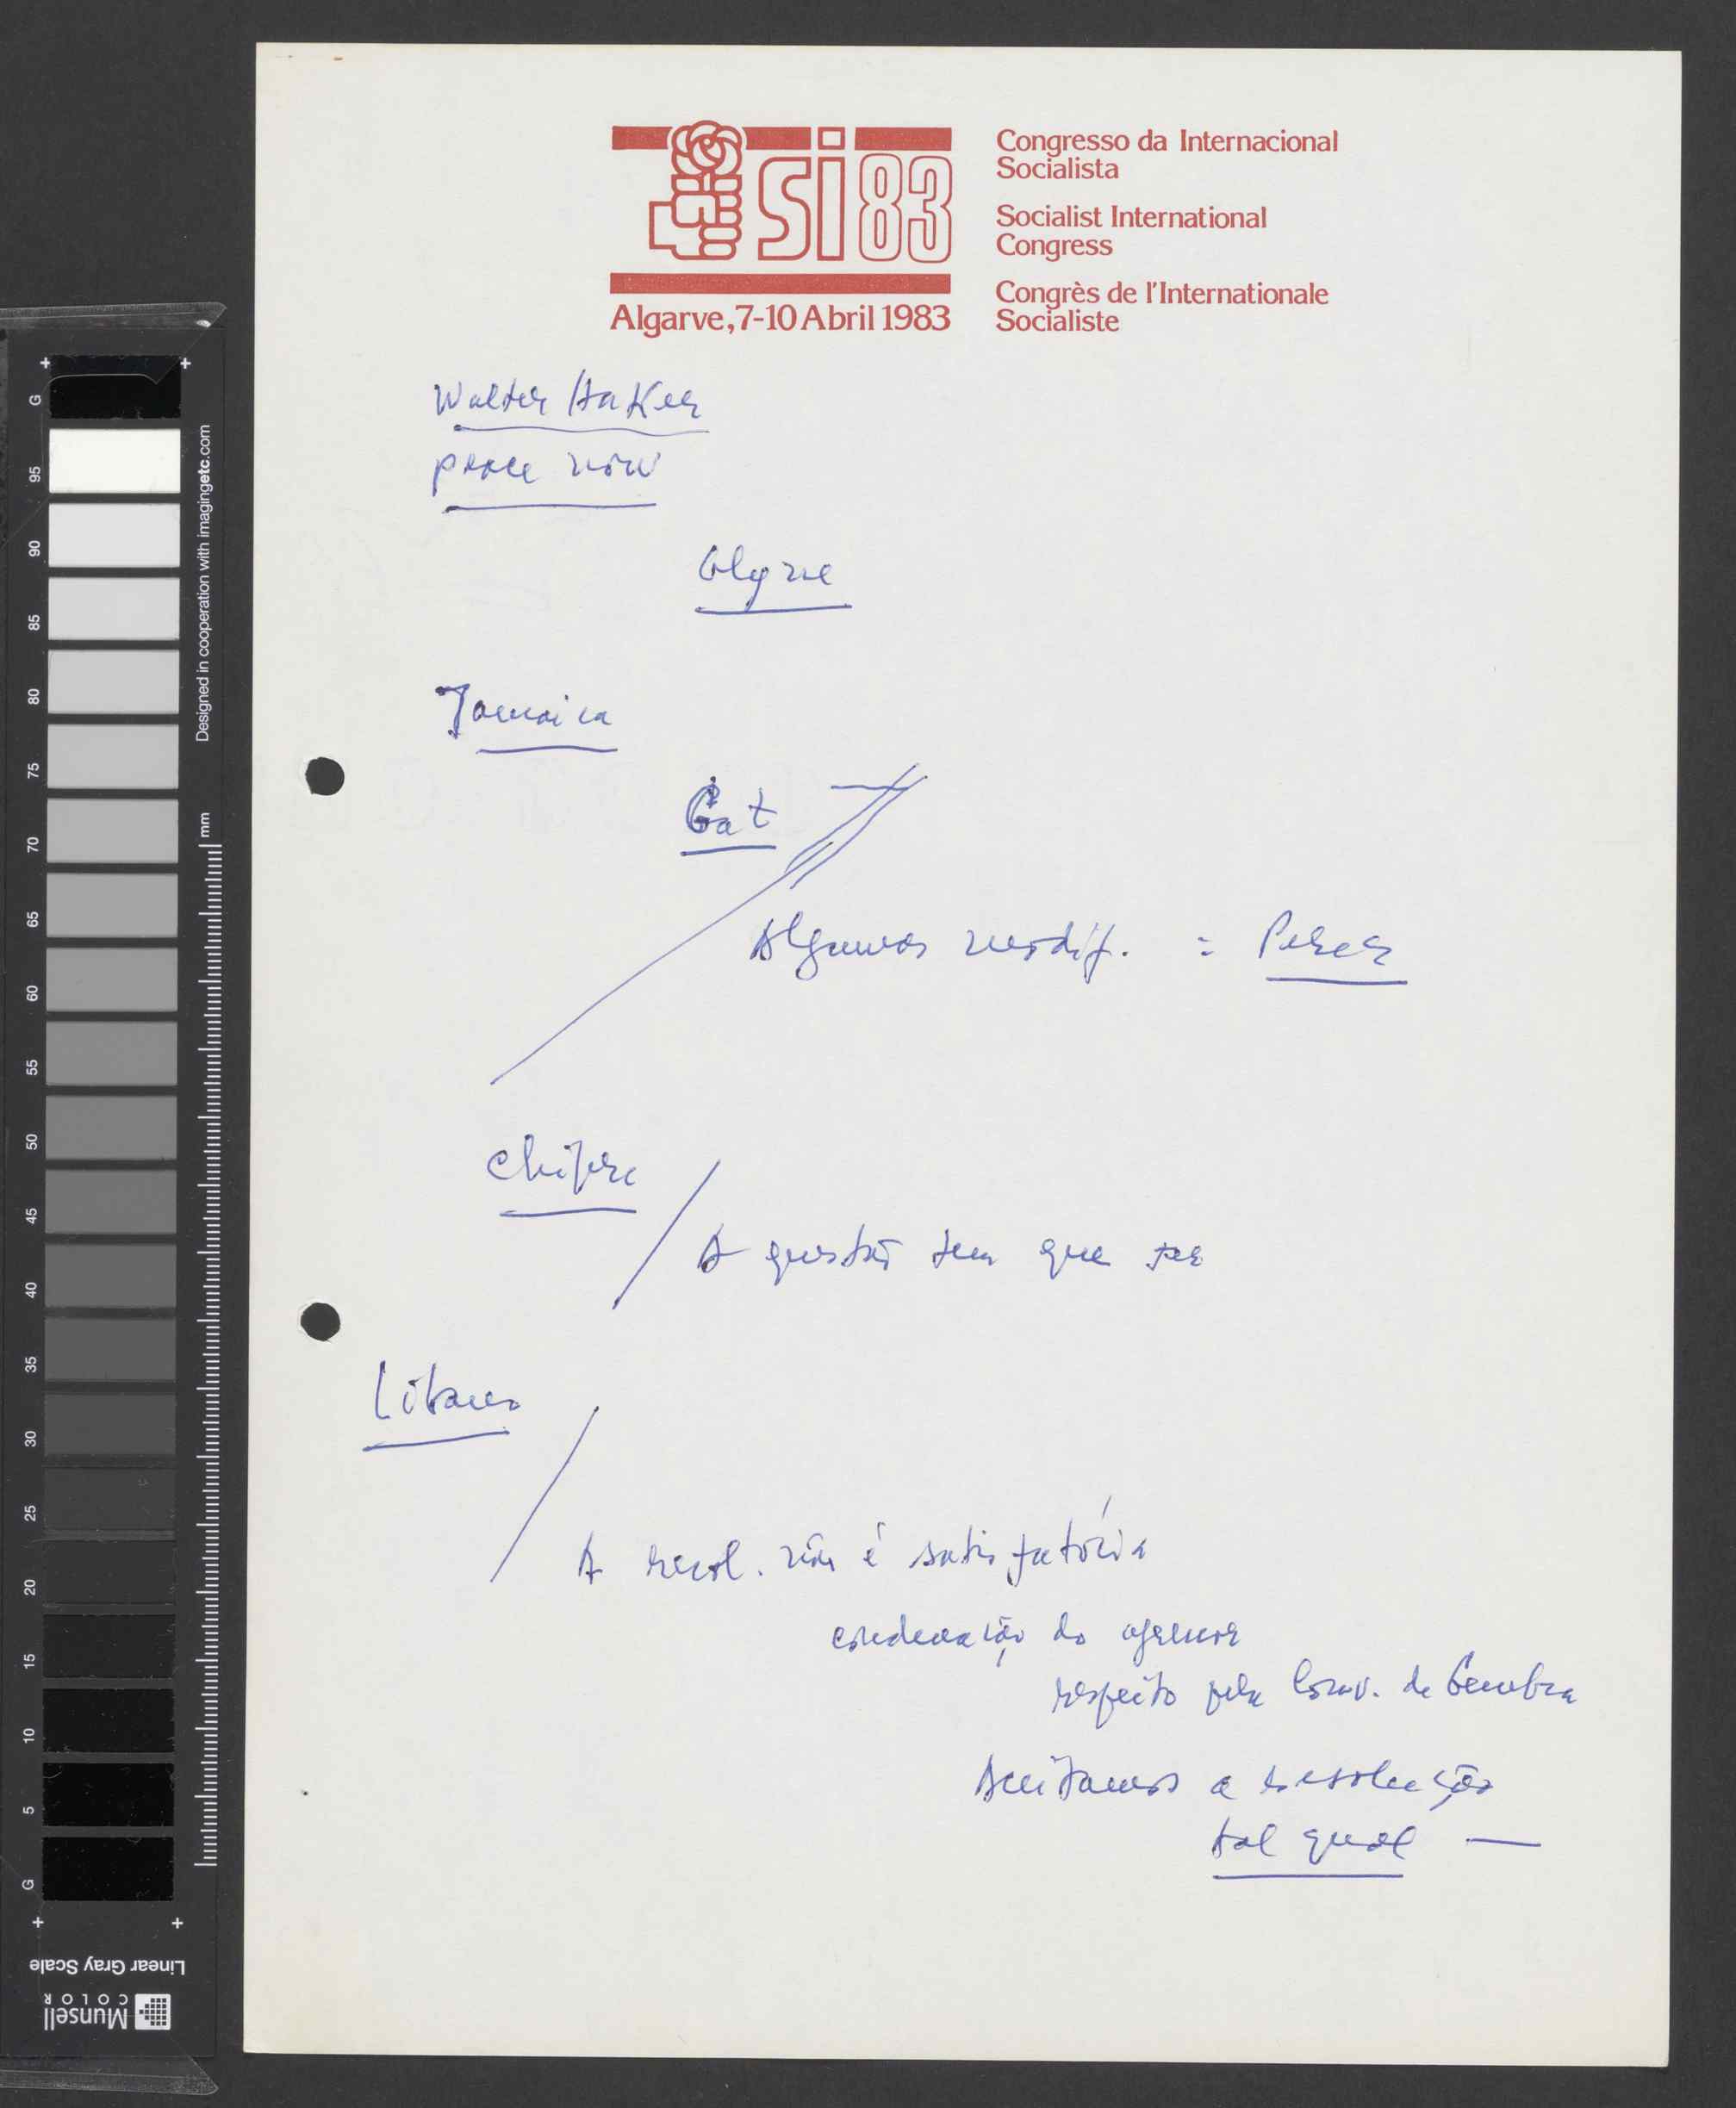 si 83
Algarve, 7-10 Abril 1983
Congresso da Internacional
Socialista
Socialist International
Congress
Congrès de l'Internationale
Socialiste
Walter HaKer
peace now
Jamaica
Gat
Algumas modif. : Peres
Chipre
A questão tem que ser
Líbano
A resol. não é satisfatória
condenação do agressor
respeito pela Conv. de Genebra
Aceitamos a resolução
tal qual —
G
95
90
85
80
75
70
65
60
55
50
45
40
35
30
25
20
15
10
5
G
Designed in cooperation with imagingetc.com
mm
Linear Gray Scale
Munsell
COLOR